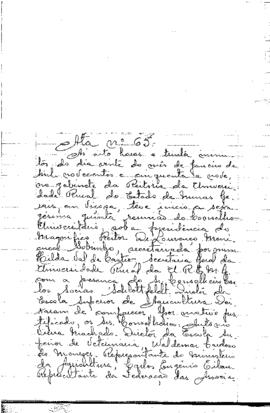 Ata nº 65.
As oito horas e trinta minu-
tos do dia vinte do mês de janeiro de
mil novecentos e cinquenta e nove,
no gabinete da Reitoria da Univer-
sidade Rural do Estado de Minas Ge-
rais, em Viçosa, teve início a sexa-
gésima quinta reunião do Conselho
Universitário sob a presidência do
Magnífico Reitor Dr. Lourenço Meni-
cucci Sobrinho secretariada por mim
Hilda Val de Castro, secretária Geral da
Universidade Rural da U R E M G
com a presença dos Conselheiros
Diretor da
Escola Superior de Agricultura. Dei-
xaram de comparecer, por motivo jus-
tificado, os srs. Conselheiros: Antonio
Vieira Machado, Diretor da Escola Su-
perior de Veterinária, Waldemar Cardoso
de Menezes, Representante do Ministério
da Agricultura, Carlos Eugênio
Representante da Federação das